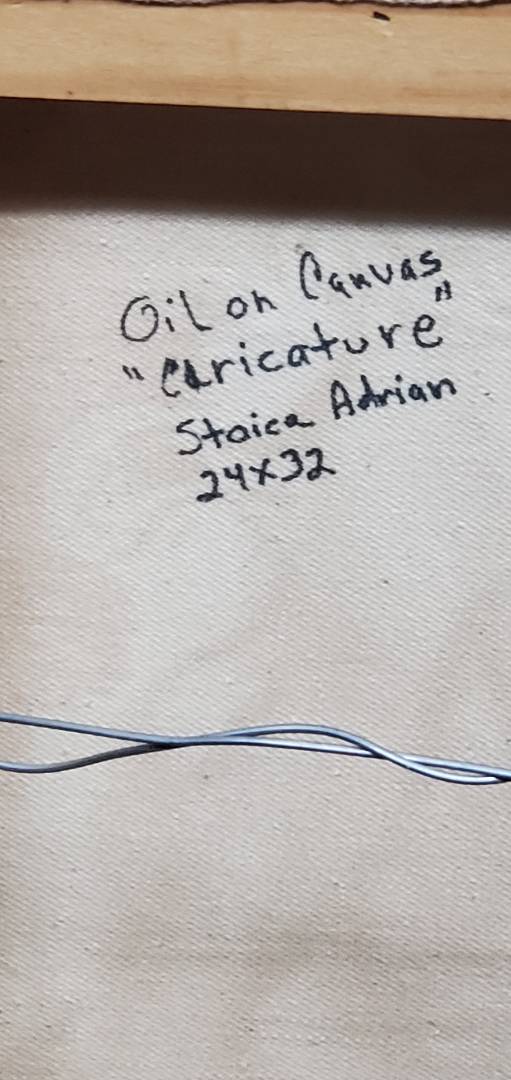 Oil on Canvas
"Caricature"
Stoica Adrian
24x32